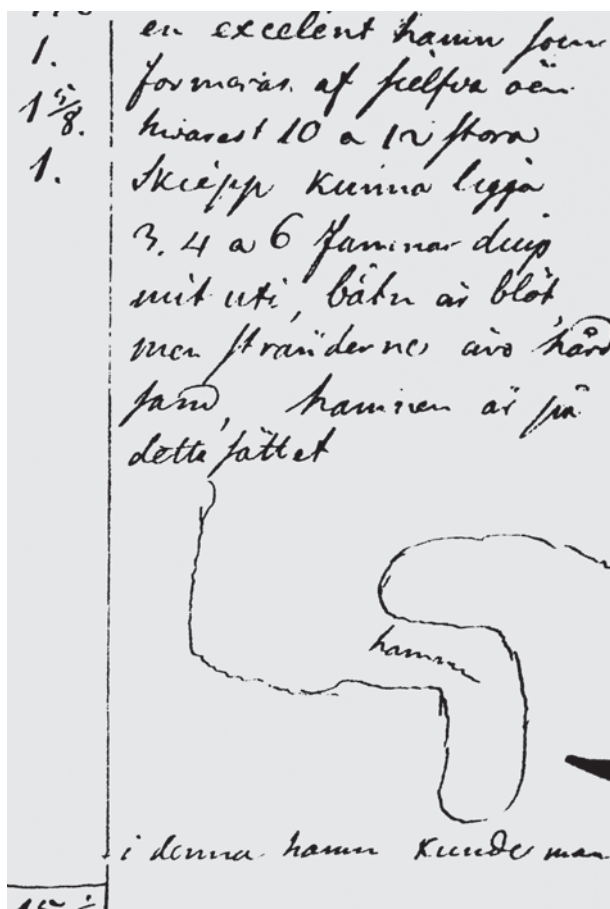 1.
1 5/8.
1.
en excelent hamn som
formeras af sielfva öen
hwarest 10 a 12 stora
skiepp kunna ligga
3. 4 a 6 famnar diup
mit uti, båtn är blöt
men strändernes äro hård
sand, hamnen är på
dette sättet
hamn
i denna hamn kunde man